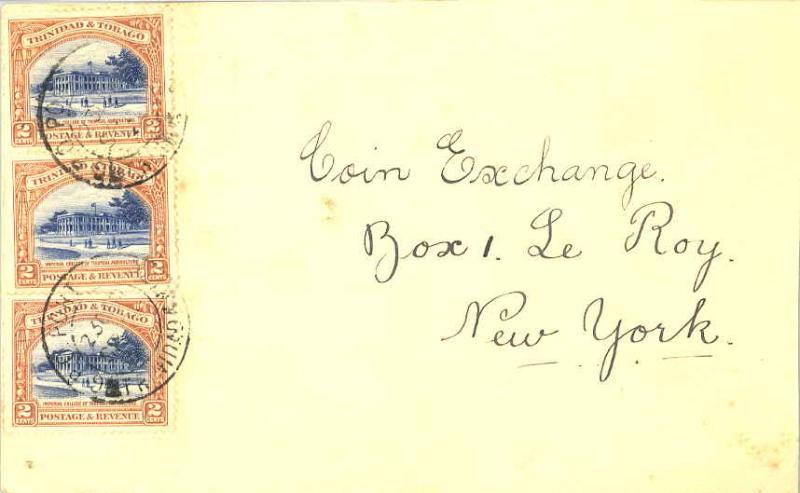 TRINIDAD & TOBAGO
IMPERIAL COLLEGE OF TROPICAL AGRICULTURE
2 CENTS POSTAGE & REVENUE 2 CENTS
TRINIDAD & TOBAGO
IMPERIAL COLLEGE OF TROPICAL AGRICULTURE
2 CENTS POSTAGE & REVENUE 2 CENTS
TRINIDAD & TOBAGO
IMPERIAL COLLEGE OF TROPICAL AGRICULTURE
2 CENTS POSTAGE & REVENUE 2 CENTS
Coin Exchange.
Box 1. Le Roy.
New York.